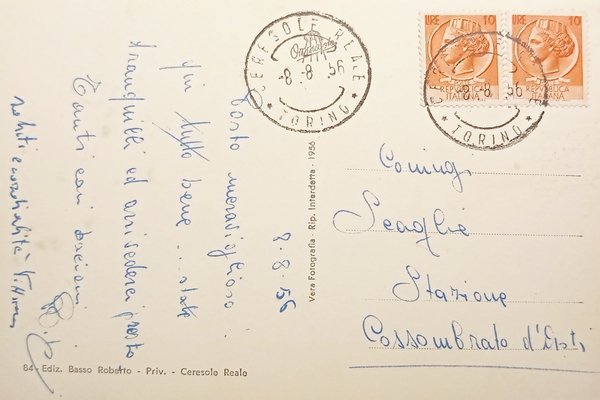 CERESOLE REALE
8-8 56
* TORINO *
LIRE 10
REPVBBLICA
ITALIANA
LIRE 10
REPVBBLICA
ITALIANA
8-8 56
* TORINO *
8.8.56
Posto meraviglioso..
qui tutto bene... state
tranquilli ed arrivederci presto
Tanti cari bacioni
saluti e cordialità
Vera Fotografia - Rip. Interdetta - 1956
Coniugi
Scaglie
Stazione
Cossombrato d'Asti
84 - Ediz. Basso Roberto - Priv. - Ceresole Reale